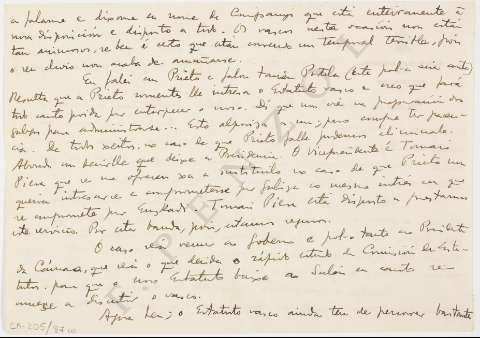 a palanca e díxome en nome de Companys que está enteiramente á
nosa disposición e disposto a todo. Os vascos nesta ocasión non están
tan animosos, se ben é certo que atan correndo un temporal terrible, pois
o seu clavo non acaba de
Eu falei con Prieto e falou tamén Portela (este pol-a súa conta)
Resulta que a Prieto somente lle intresa o Estatuto vasco e creo que fará
todo canto poida por entorpecer o noso. Di que non ve na preparación dos
galegos para administrarse... Esto alporiza a un; pero compre ter pacen-
cia. De todos xeitos, no caso de que Prieto falle podemos eliminalo.
Abonda con decirlle que deixe a Presidencia. O vicepresidente é Tomás
Piera que se me ofreceu xa a sustituilo no caso de que Prieto non
queira intresarse e comprometerse por Galiza co mesmo intres con que
se compromete por Euzkadi. Tomás Piera está disposto a prestarnos
este servicio. Por esta banda, pois, estamos seguros.
O caso será vencer ao Goberno e pol-o tanto ao Presidente
da Cámara, que será o que decida o rápido estudo da Comisión de Esta-
tutos, para que o noso Estatuto baixe ao Salón en canto se
comece a discutir o vasco.
Agora ben; o Estatuto vasco ainda ten de percorrer bastante
CA-205/87